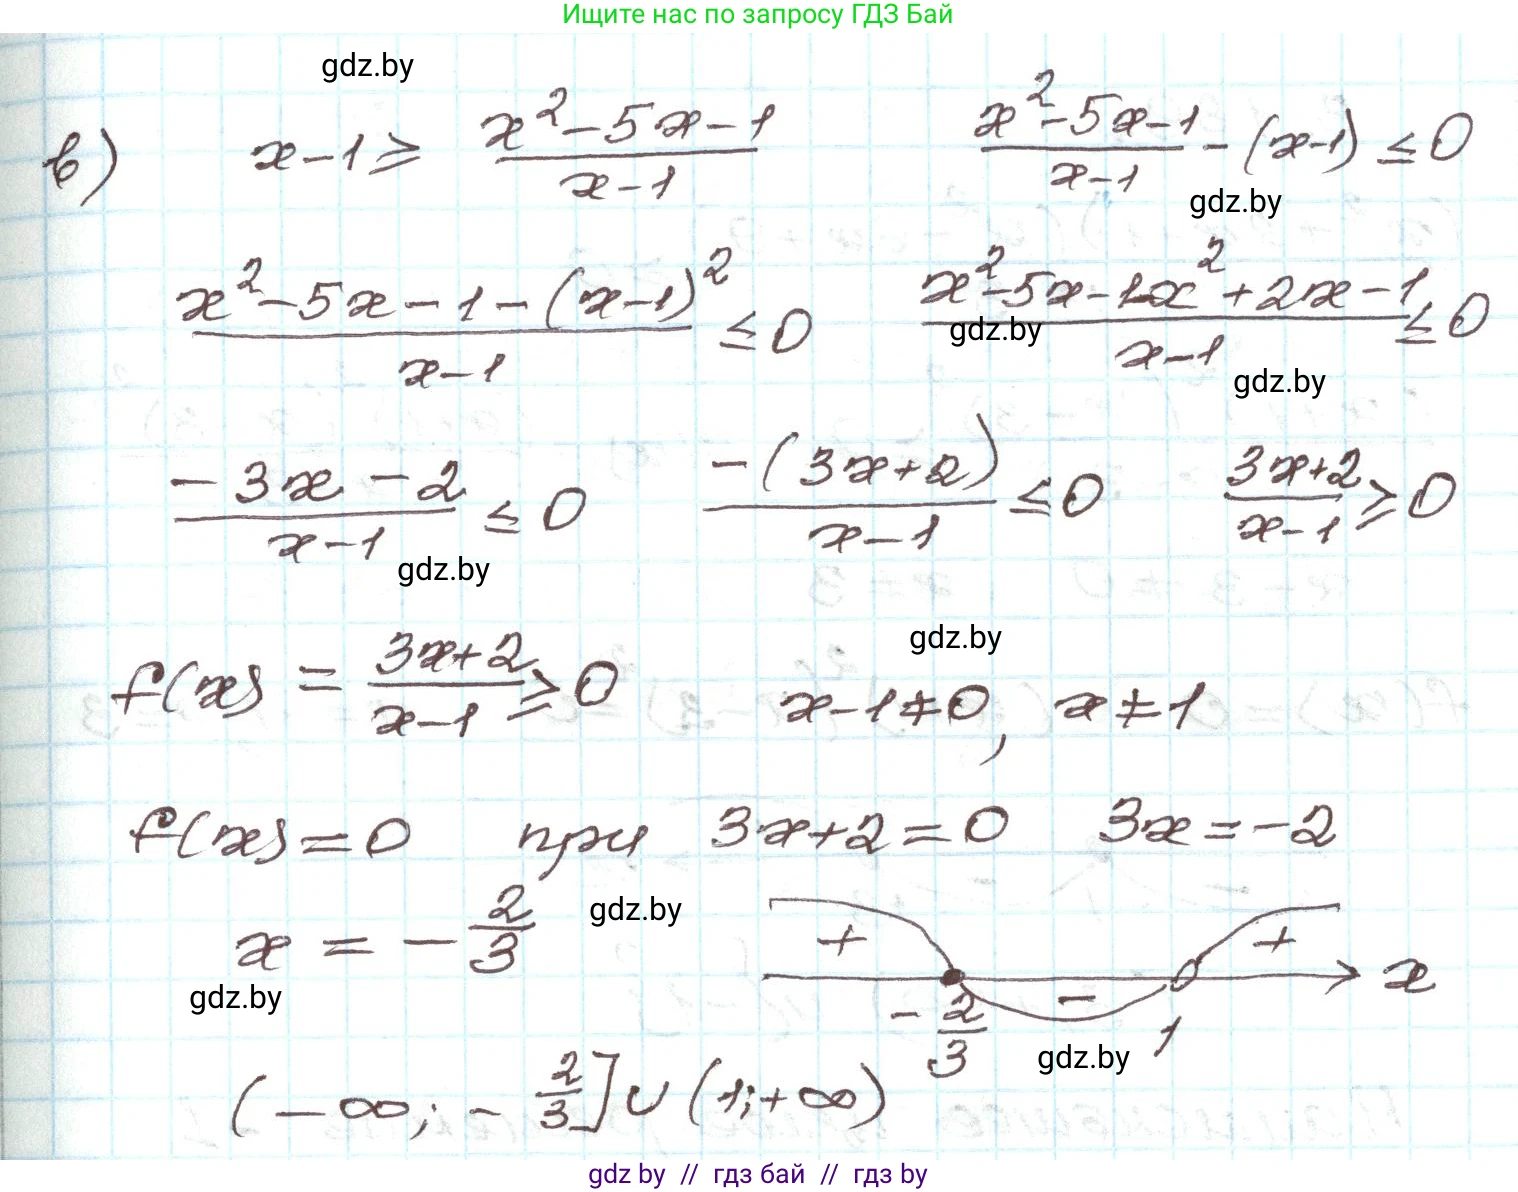 Ищите нас по запросу ГДЗ Бай
gdz.by
в) x-1 ≥ (x²-5x-1)/(x-1)   (x²-5x-1)/(x-1) - (x-1) ≤ 0
gdz.by
(x²-5x-1-(x-1)²)/(x-1) ≤ 0   (x²-5x-1-x²+2x-1)/(x-1) ≤ 0
gdz.by
gdz.by
(-3x-2)/(x-1) ≤ 0   (-(3x+2))/(x-1) ≤ 0   (3x+2)/(x-1) ≥ 0
gdz.by
gdz.by
f(x) = (3x+2)/(x-1) ≥ 0   x-1≠0, x≠1
f(x)=0 при 3x+2=0   3x=-2
gdz.by
x = -2/3   + - + x
gdz.by
-2/3   1
gdz.by
(-∞; -2/3]∪(1;+∞)
gdz.by // гдз бай // гдз by